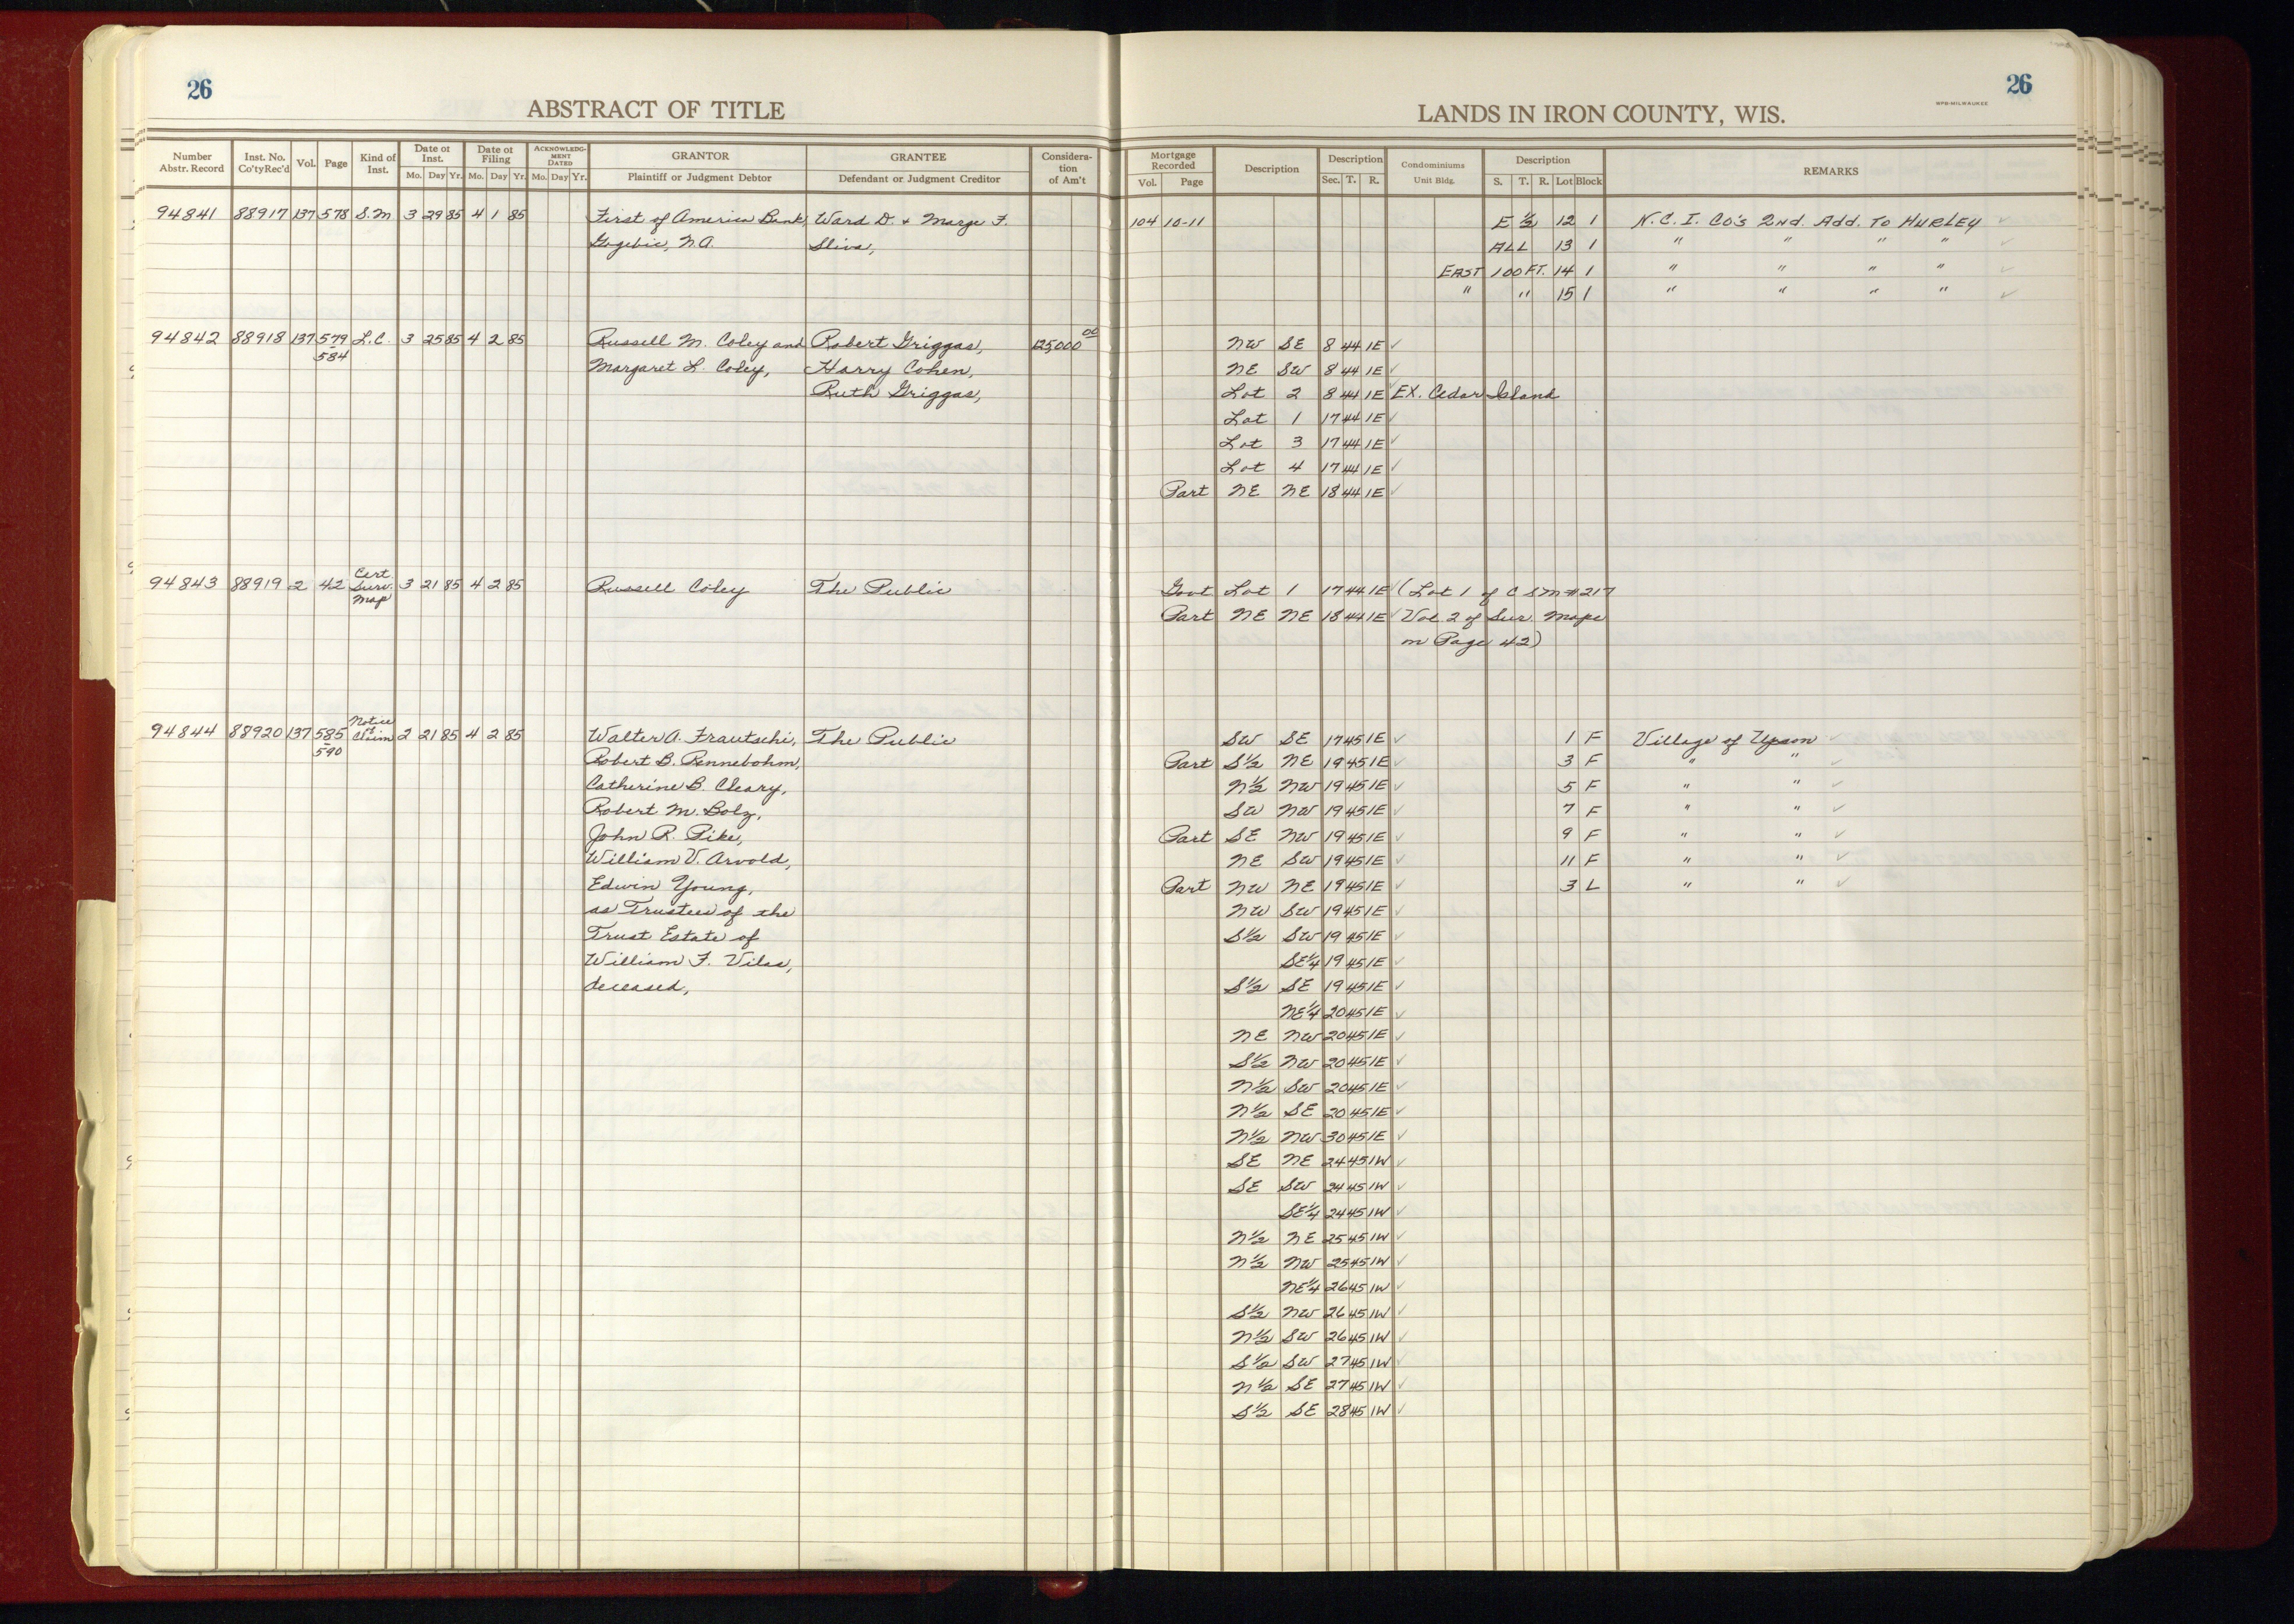 26
26
ABSTRACT OF TITLE
LANDS IN IRON COUNTY, WIS.
WPB-MILWAUKEE
Number Abstr. Record Inst. No. Co'ty Rec'd Vol. Page Kind of Inst. Date of Inst. Mo. Day Yr. Date of Filing Mo. Day Yr. ACKNOWLEDGMENT DATED Mo. Day Yr. GRANTOR Plaintiff or Judgment Debtor GRANTEE Defendant or Judgment Creditor Consideration of Am't
Mortgage Recorded Vol. Page Description Description Sec. T. R. Condominiums Unit Bldg. Description S. T. R. Lot Block REMARKS
94841 88917 137 578 S.M 3 29 85 4 1 85 First of America Bank, Ward D. + Marge F. 104 10-11 E 1/2 12 1 N.C.I. CO'S 2nd. Add. To HURLEY
Gogebic, N.A. Sliva, ALL 13 1 " " " "
EAST 100 FT. 14 1 " " " "
" " 15 1 " " " "
94842 88918 137 579 L.C. 3 25 85 4 2 85 Russell M. Coley and Robert Griggas, 125,000 00 NW SE 8 44 1E
584 Margaret L. Coley, Harry Cohen, NE SW 8 44 1E
Ruth Griggas, Lot 2 8 44 1E EX. Cedar Island
Lot 1 17 44 1E
Lot 3 17 44 1E
Lot 4 17 44 1E
Part NE NE 18 44 1E
94843 88919 2 42 Cert Surv. Map 3 21 85 4 2 85 Russell Coley The Public Govt Lot 1 17 44 1E (Lot 1 of C S M # 217
Part NE NE 18 44 1E Vol. 2 of Sur. Maps
on Page 42)
94844 88920 137 585 Notice of Claim 2 21 85 4 2 85 Walter A. Frautschi, The Public SW SE 17 45 1E 1 F Village of Upson
590 Robert B. Rennebohm, Part S1/2 NE 19 45 1E 3 F " "
Catherine B. Cleary, N1/2 NW 19 45 1E 5 F " "
Robert M. Bolz, SW NW 19 45 1E 7 F " "
John R. Pike, Part SE NW 19 45 1E 9 F " "
William V. Arvold, NE SW 19 45 1E 11 F " "
Edwin Young, Part NW NE 19 45 1E 3 L " "
as Trustees of the NW SW 19 45 1E
Trust Estate of S1/2 SW 19 45 1E
William F. Vilas, SE1/4 19 45 1E
deceased, S1/2 SE 19 45 1E
NE1/4 20 45 1E
NE NW 20 45 1E
S1/2 NW 20 45 1E
N1/2 SW 20 45 1E
N1/2 SE 20 45 1E
N1/2 NW 30 45 1E
SE NE 24 45 1W
SE SW 24 45 1W
SE1/4 24 45 1W
N1/2 NE 25 45 1W
N1/2 NW 25 45 1W
NE1/4 26 45 1W
S1/2 NW 26 45 1W
N1/2 SW 26 45 1W
S1/2 SW 27 45 1W
N1/2 SE 27 45 1W
S1/2 SE 28 45 1W